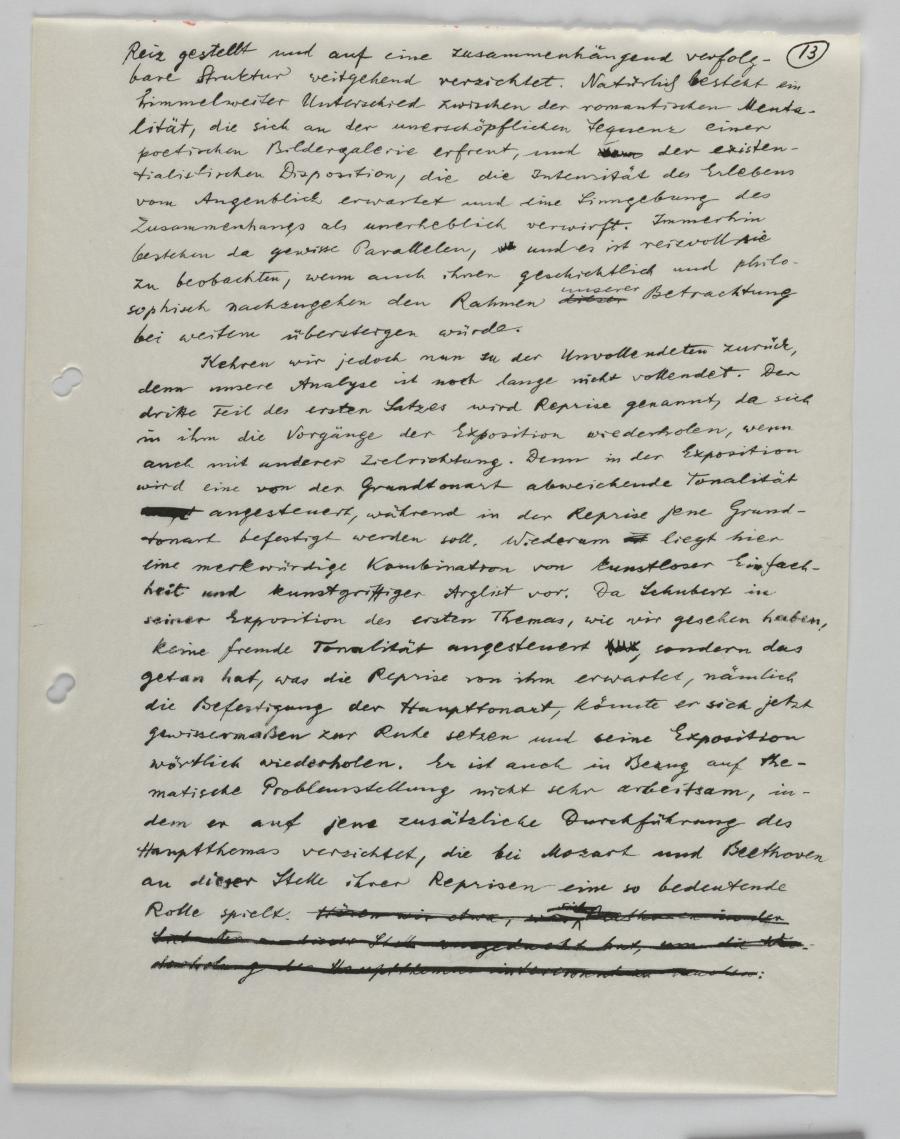 13
Reiz gestellt und auf eine zusammenhängend verfolg-
bare Struktur weitgehend verzichtet. Natürlich besteht ein
himmelweiter Unterschied zwischen der romantischen Menta-
lität, die sich an der unerschöpflichen Sequenz einer
poetischen Bildergalerie erfreut, und der existen-
tialistischen Disposition, die die Intensität des Erlebens
vom Augenblick erwartet und eine Sinngebung des
Zusammenhangs als unerheblich verwirft. Immerhin
bestehen da gewisse Parallelen, und es ist reizvoll sie
zu beobachten, wenn auch ihnen geschichtlich und philo-
sophisch nachzugehen den Rahmen dieser unserer Betrachtung
bei weitem übersteigen würde.
Kehren wir jedoch nun zu der Unvollendeten zurück,
denn unsere Analyse ist noch lange nicht vollendet. Der
dritte Teil des ersten Satzes wird Reprise genannt, da sich
in ihm die Vorgänge der Exposition wiederholen, wenn
auch mit anderer Zielrichtung. Denn in der Exposition
wird eine von der Grundtonart abweichende Tonalität
angesteuert, während in der Reprise jene Grund-
tonart befestigt werden soll. Wiederum liegt hier
eine merkwürdige Kombination von kunstloser Einfach-
heit und kunstgriffiger Arglist vor. Da Schubert in
seiner Exposition des ersten Themas, wie wir gesehen haben,
keine fremde Tonalität angesteuert, sondern das
getan hat, was die Reprise von ihm erwartet, nämlich
die Befestigung der Haupttonart, könnte er sich jetzt
gewissermaßen zur Ruhe setzen und seine Exposition
wörtlich wiederholen. Er ist auch in Bezug auf the-
matische Problemstellung nicht sehr arbeitsam, in-
dem er auf jene zusätzliche Durchführung des
Hauptthemas verzichtet, die bei Mozart und Beethoven
an dieser Stelle ihrer Reprisen eine so bedeutende
Rolle spielt. Hören wir etwa, was sich Beethoven in der
an dieser Stelle ausgedacht hat, um die Wie-
derholung des Hauptthemas interessant zu machen: